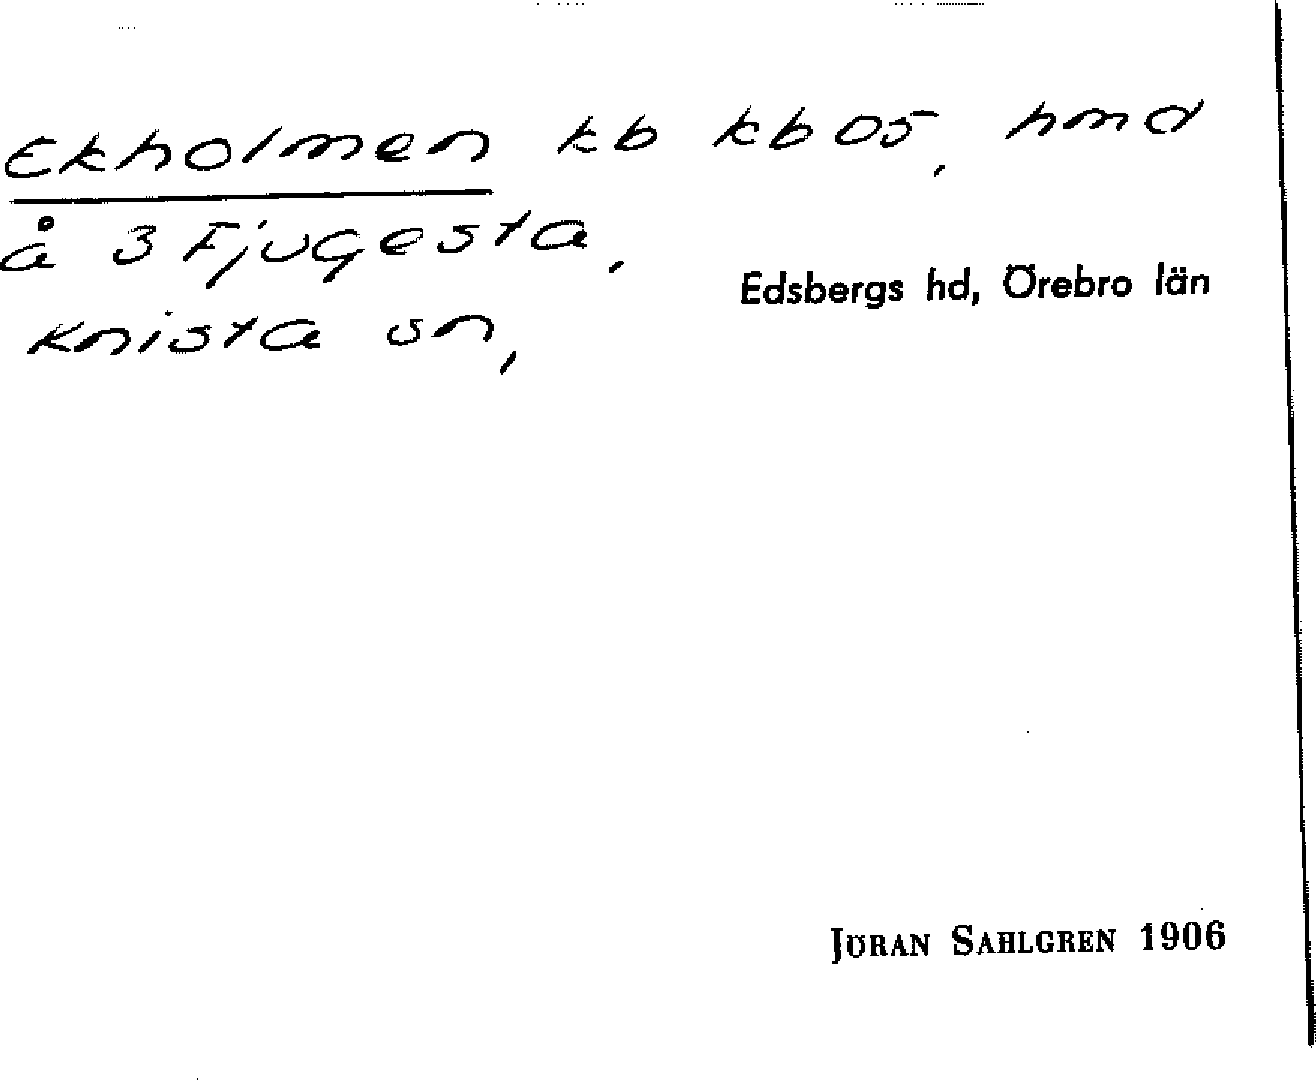 Ekholmen kb kb 05, hmd
å 3 Fjugesta,
Edsbergs hd, Örebro län
Knista sn,
JÖRAN SAHLGREN 1906